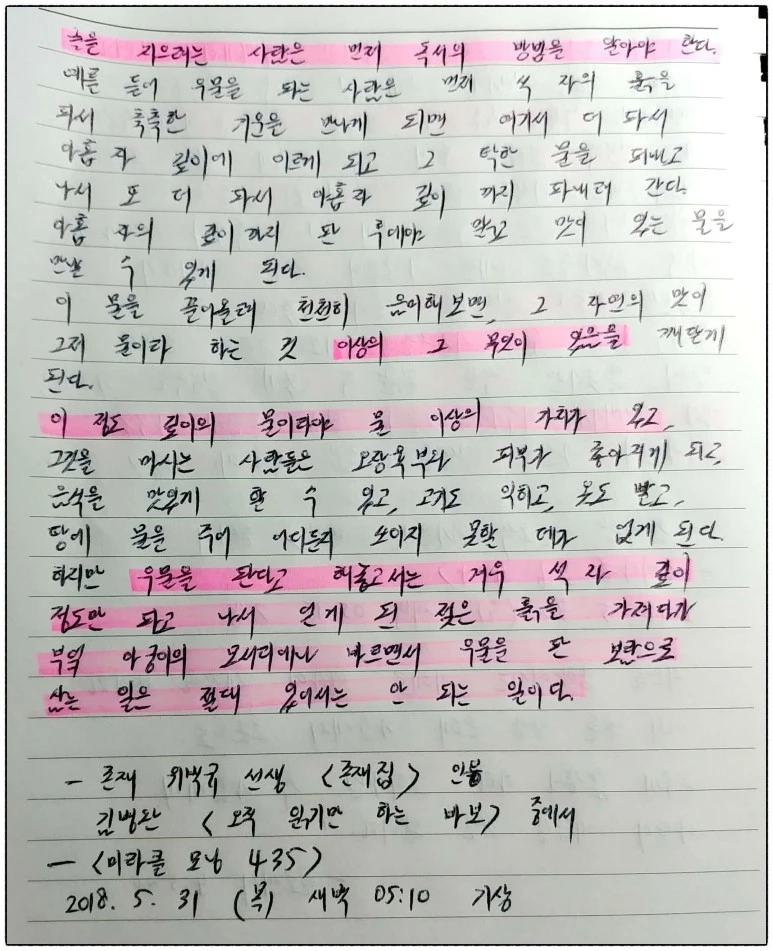 글을 지으려는 사람은 먼저 독서의 방법을 알아야 한다.
예를 들어 우물을 파는 사람은 먼저 석 자의 흙을
파서 축축한 기운을 만나게 되면 여기서 더 파서
아홉 자 깊이에 이르게 되고 그 탁한 물을 퍼내고
나서 또 더 파서 아홉 자 깊이 까지 파내려 간다.
아홉 자의 깊이 까지 판 후에야 맑고 맛이 있는 물을
만날 수 있게 된다.
이 물을 끌어올려 천천히 음미해보면, 그 자연의 맛이
그저 물이라 하는 것 이상의 그 무엇이 있음을 깨닫게
된다.
이 정도 깊이의 물이라야 물 이상의 가치가 있고,
그것을 마시는 사람들은 오장육부와 피부가 좋아지게 되고,
음식을 맛있게 할 수 있고, 고기도 익히고, 옷도 빨고,
땅에 물을 주어 어디든지 쓰이지 못할 데가 없게 된다.
하지만 우물을 판다고 해놓고서는 겨우 석 자 깊이
정도만 파고 나서 얻게 된 젖은 흙을 가져다가
부엌 아궁이의 모서리에나 바르면서 우물을 판 보람으로
삼는 일은 절대 있어서는 안 되는 일이다.
- 존재 위백규 선생 <존재집> 인용
김병완 <오직 읽기만 하는 바보> 중에서
- <미라클 모닝 435>
2018. 5. 31 (목) 새벽 05:10 기상